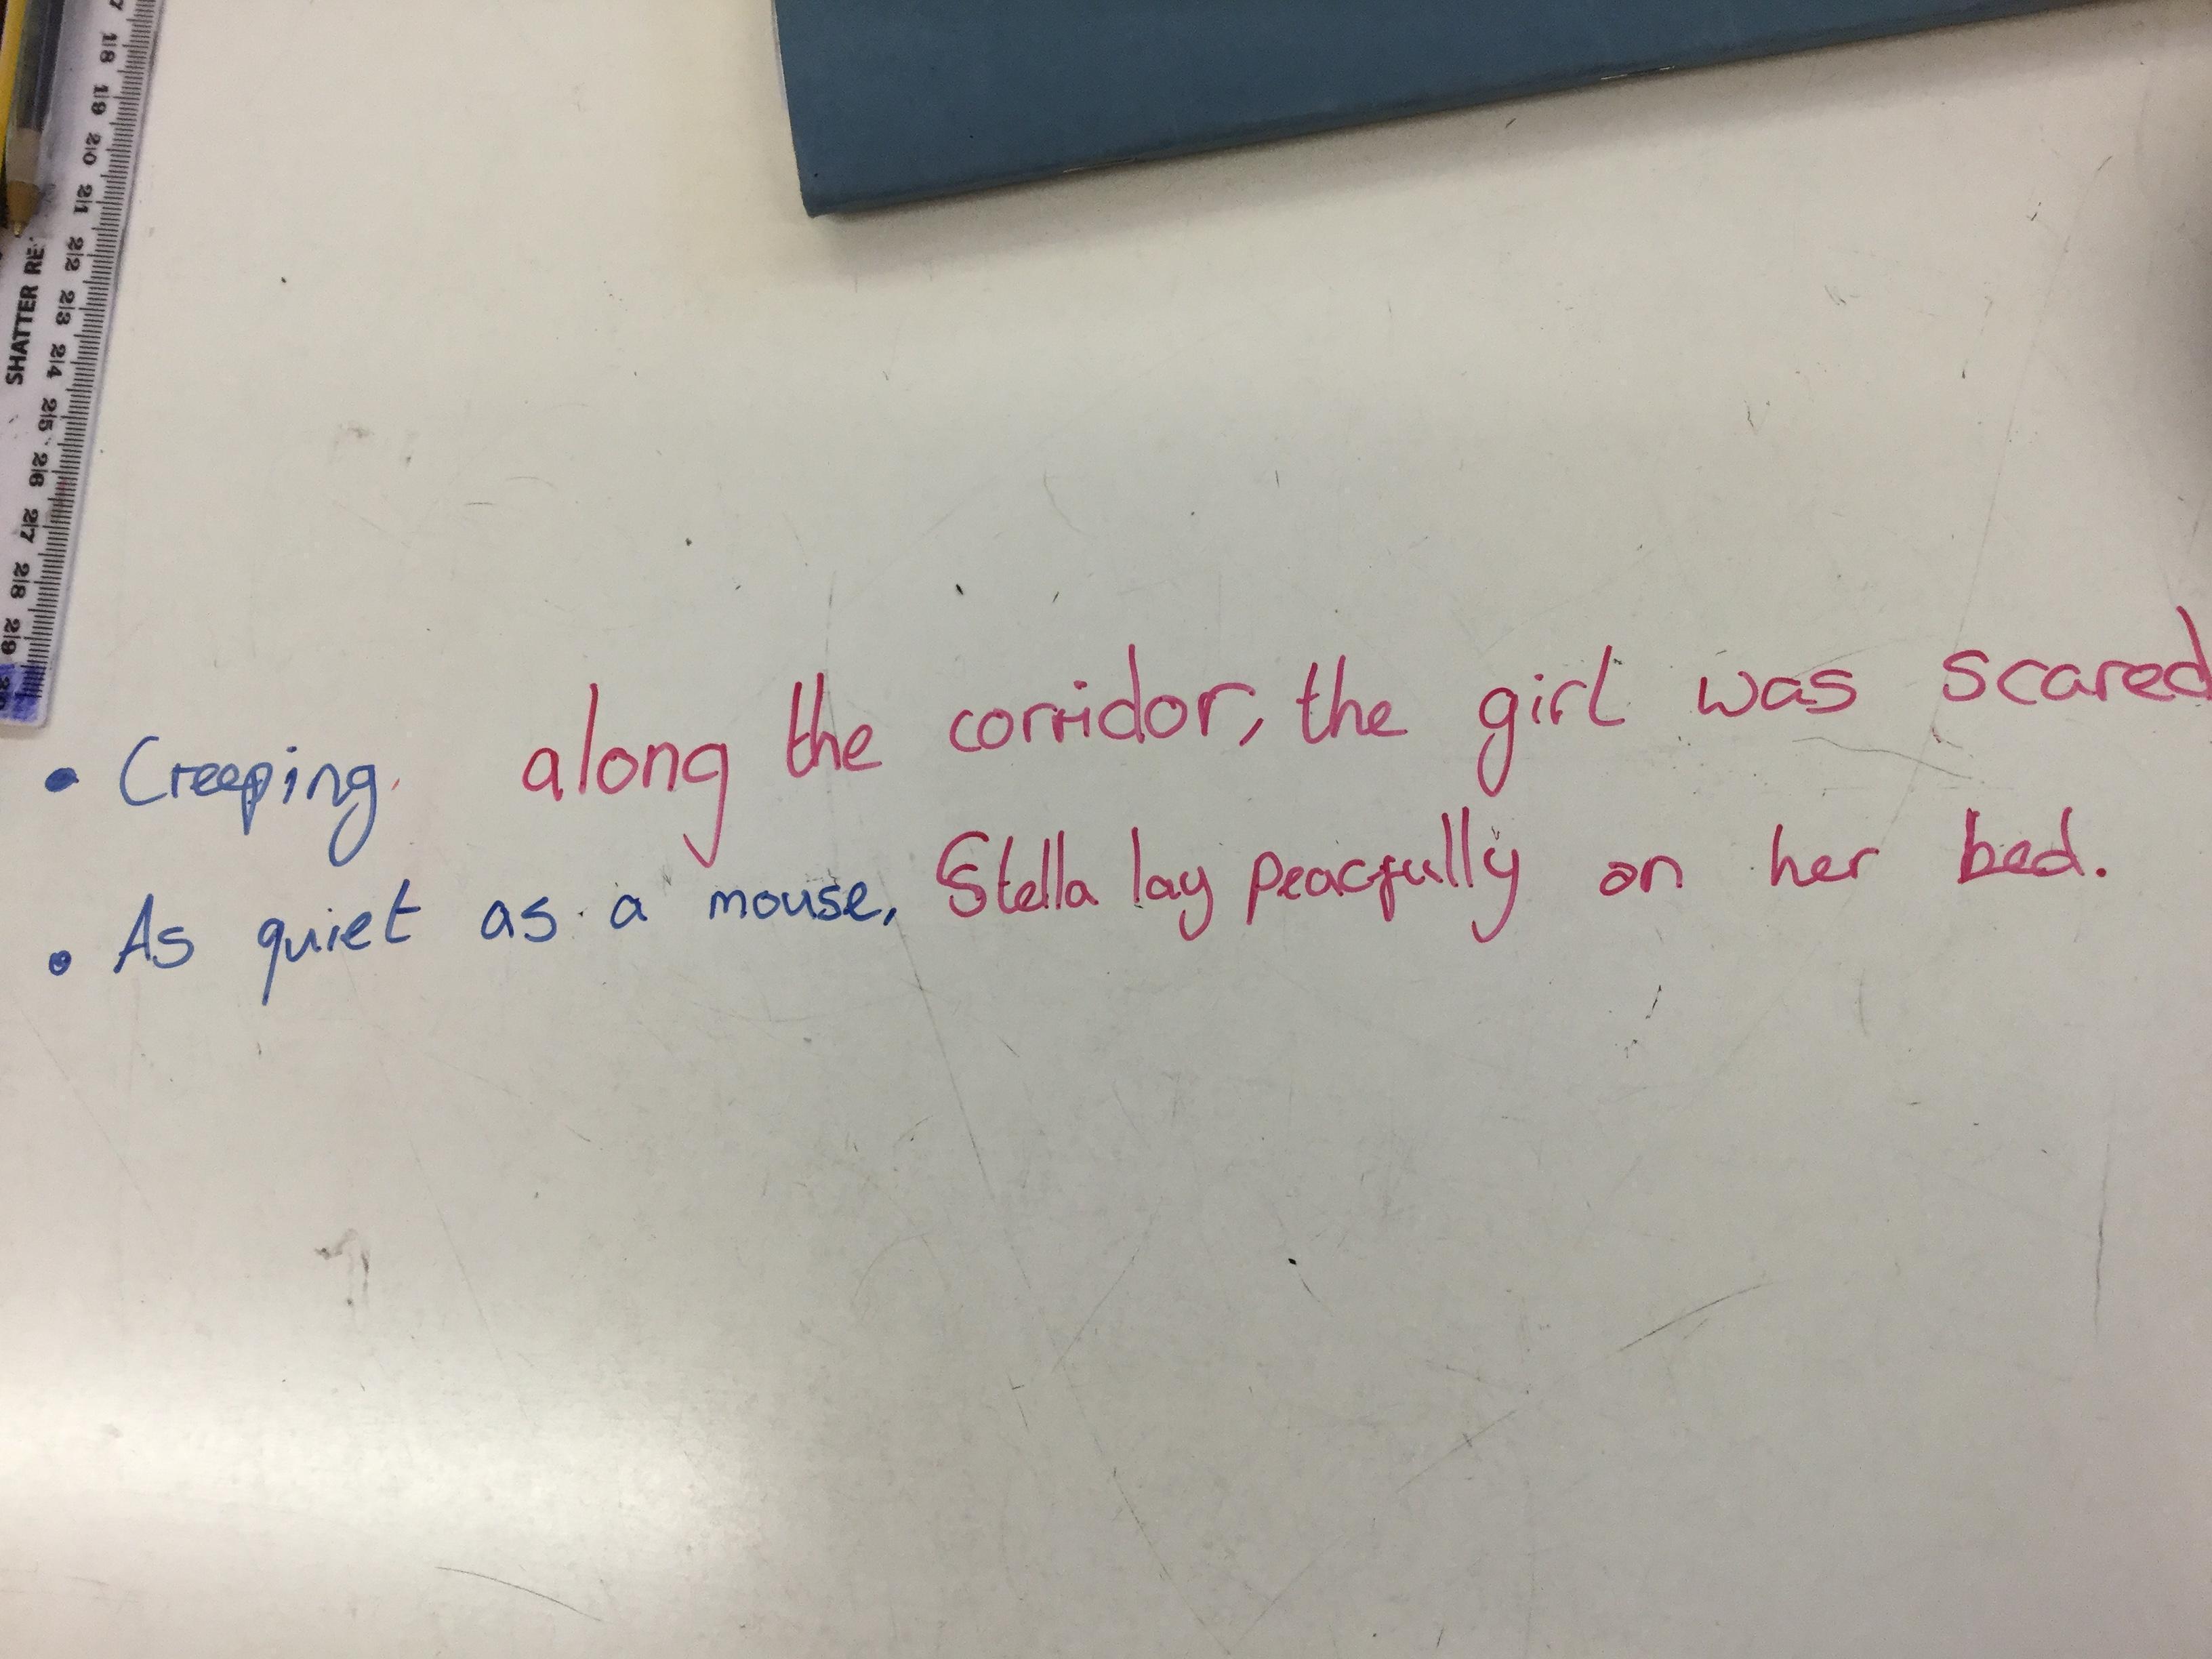 17
18
19
20
21
22
23
24
25
26
27
28
29
SHATTER RE
• Creeping along the corridor, the girl was scared
• As quiet as a mouse, Stella lay peacfully on her bed.